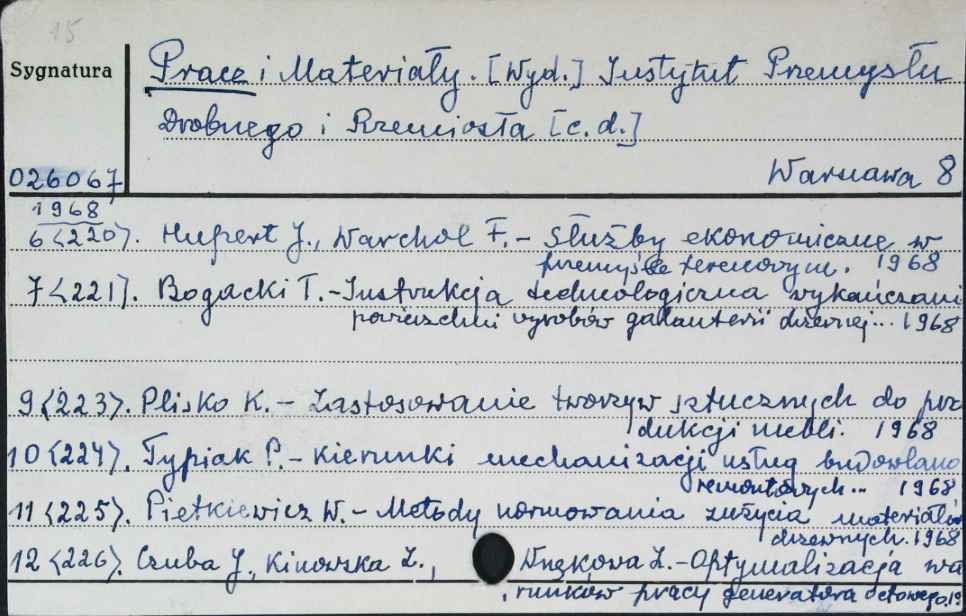 15
Sygnatura
Prace i Materiały. [Wyd.] Instytut Przemysłu
Drobnego i Rzemiosła [c.d.]
026067
Warszawa 8
1968
6<220>. Hupert J., Warchoł F. – Służby ekonomiczne w
przemyśle terenowym. 1968
7<221>. Bogacki T. – Instrukcja technologiczna wykańczani
powierzchni wyrobów galanterii drzewnej... 1968
9<223>. Plisko K. – Zastosowanie tworzyw sztucznych do pro
dukcji mebli. 1968
10<224>. Typiak P. – Kierunki mechanizacji usług budowlano
remontowych... 1968
11<225>. Pietkiewicz W. – Metody normowania zużycia materiałów
drzewnych. 1968
12<226>. Czuba J., Kinowska Z., Wnękowa Z. – Optymalizacja wa
runków pracy generatora octowego, 19